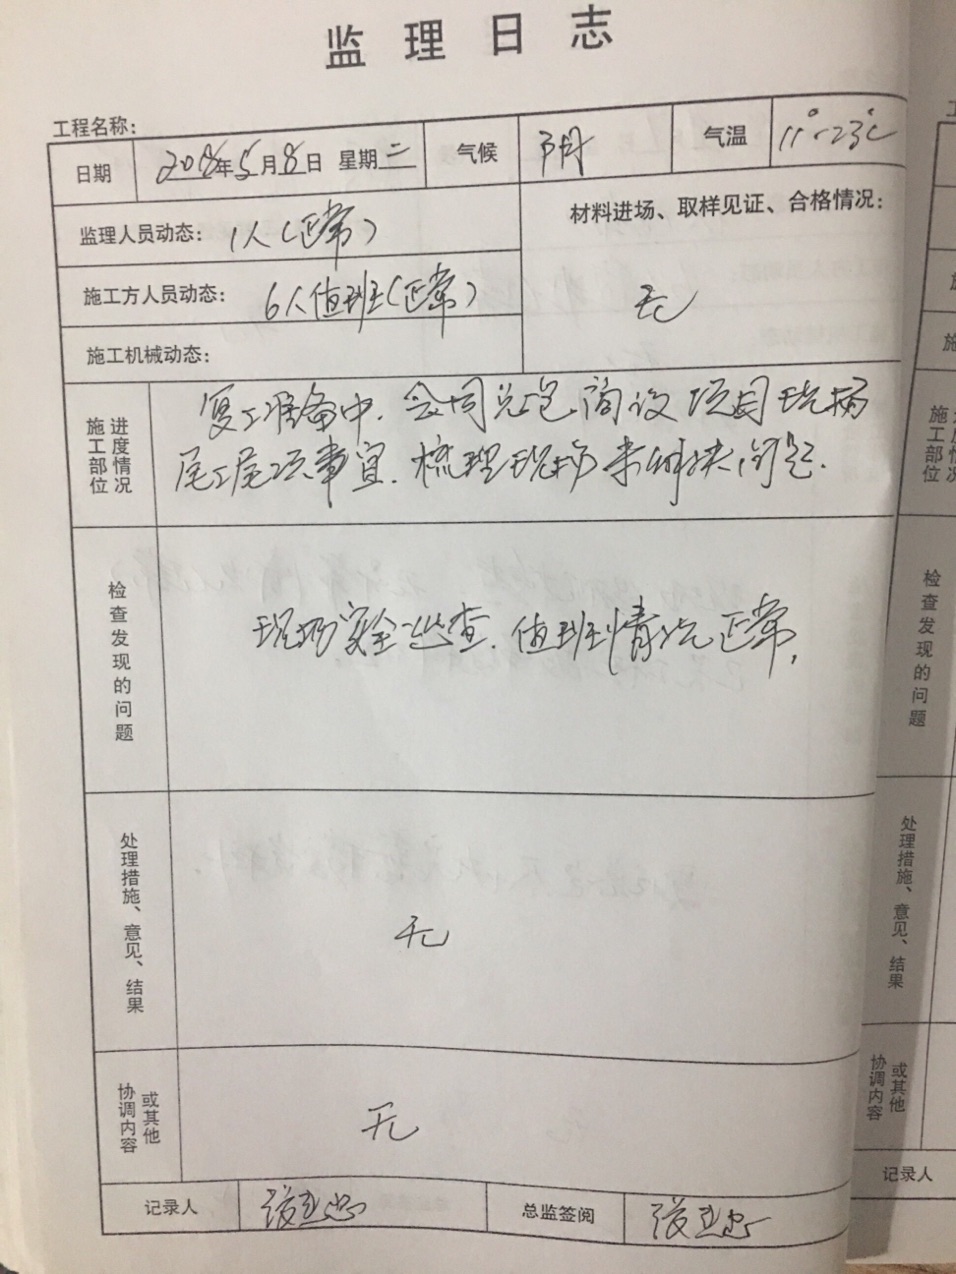 监理日志
工程名称:
日期 2018年5月8日 星期二 气候 阴 气温 11°-23℃
监理人员动态: 1人(正常)
材料进场、取样见证、合格情况:
无
施工方人员动态: 6人值班(正常)
施工机械动态:
施工部位 进度情况
复工准备中. 会同总包商议项目现场
尾工尾项事宜. 梳理现场条件 问题.
检查发现的问题
现场安全巡查. 值班情况正常,
处理措施、意见、结果
无
协调内容 或其他
无
记录人 总监签阅
工
施
施
施工部位
检查发现的问题
处理措施、意见、结果
协调内容 或其他
记录人